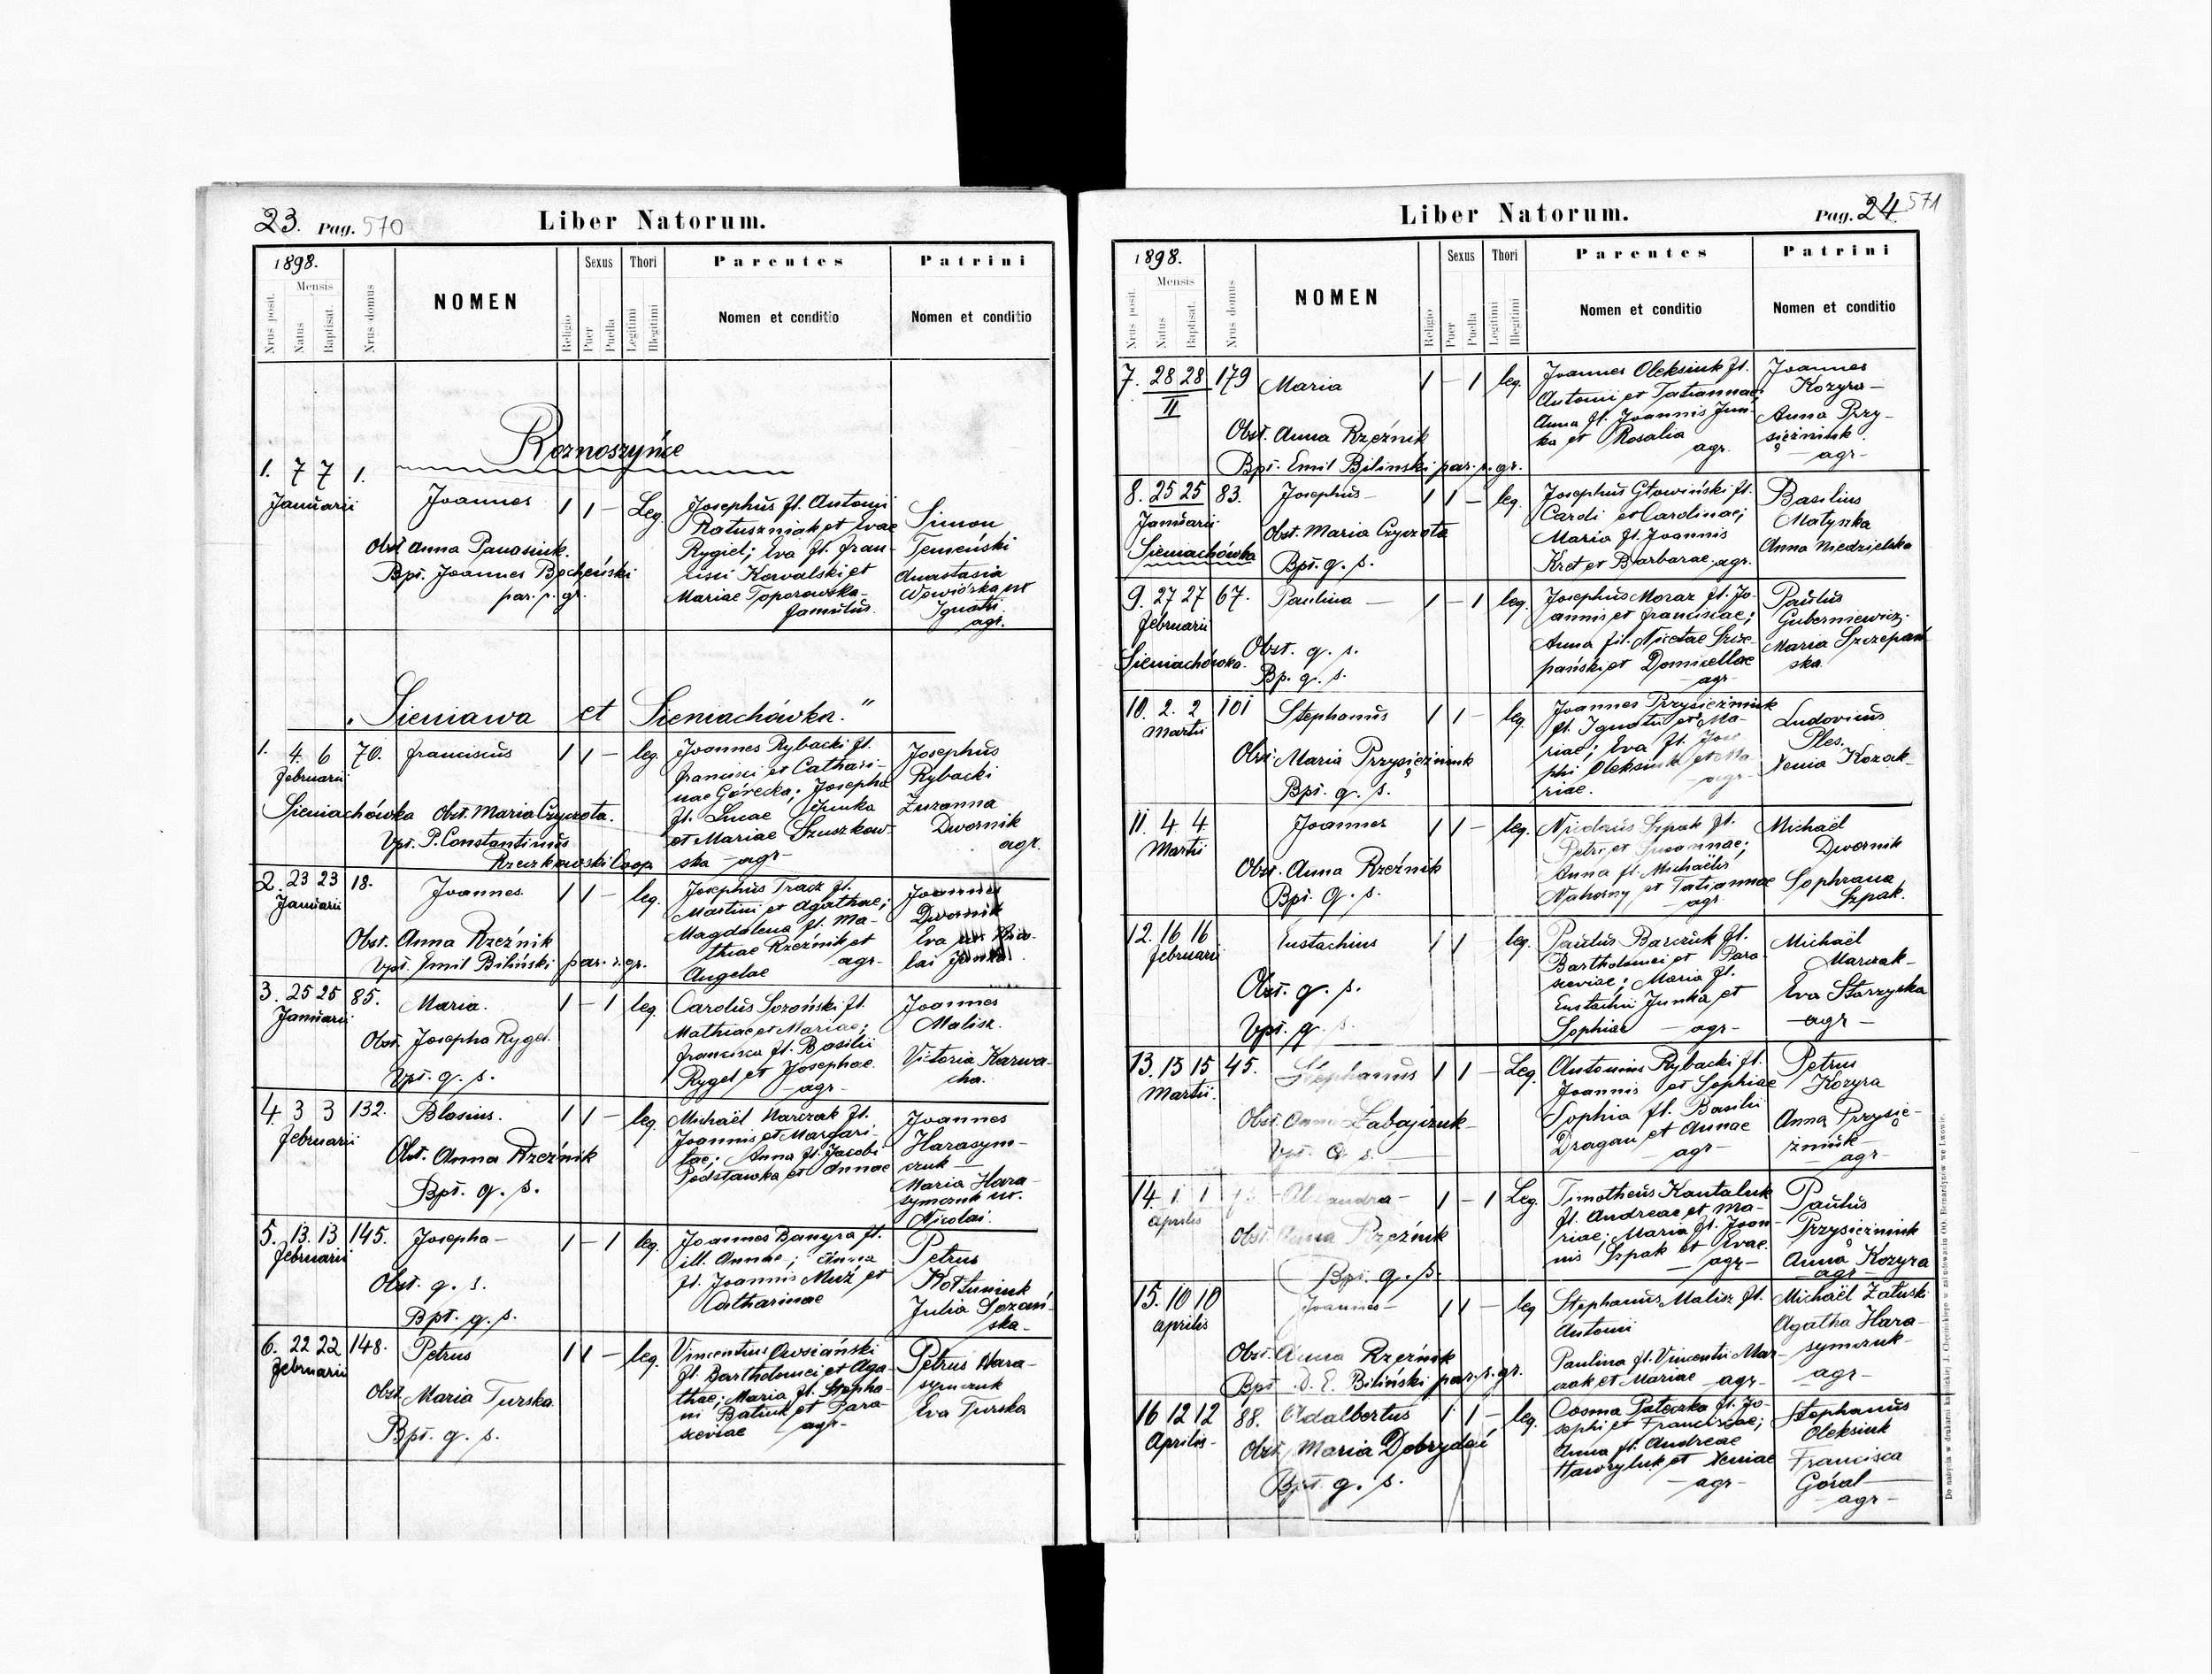 23. Pag. 570
Liber Natorum.
1898.
Mensis
Nrus posit.
Natus
Baptisat.
Nrus domus
NOMEN
Religio
Sexus
Puer
Puella
Thori
Legitimi
Illegitimi
Parentes
Nomen et conditio
Patrini
Nomen et conditio
Roznoszyńce
1. 7 7 1.
Januarii
Joannes 1 1 — Leg.
Obst. Anna Panasiuk.
Bpt. Joannes Bocheński
par. r. gr.
Josephus fl. Antonii
Ratuszniak et Evae
Rygiel; Eva fl. Fran-
cisci Kowalski et
Mariae Toporowska-
famulus.
Simon
Temeński
Anastasia
Wowiórka ux
Ignatii.
agr.
„Sieniawa et Sieniachówka."
1. 4. 6 70. Franciscus 1 1 — leg.
Februarii
Sieniachówka Obst. Maria Czyczota.
Vpt. P. Constantinus
Rzeczkowski Coop.
Joannes Rybacki fl.
Francisci et Cathari-
nae Górecka; Josepha
fl. Lucae Junka
et Mariae Szuszkow-
ska — agr —
Josephus
Rybacki
Zuzanna
Dwornik
agr.
2. 23 23 18. Joannes. 1 1 — leg.
Januarii
Obst. Anna Rzeźnik
Vpt. Emil Biliński par. r. gr.
Josephus Tracz fl.
Martini et Agathae;
Magdalena fl. Ma-
thiae Rzeźnik et
Angelae agr-
Joannes
Dwornik
Eva
3. 25 25 85. Maria. 1 — 1 leg.
Januarii
Obst. Josepha Rygel.
Vpt. q. s.
Carolus Sozoński fl.
Mathiae et Mariae;
Francisca fl. Basilii
Rygel et Josephae.
— agr —
Joannes
Malisz.
Victoria Karwa-
cha.
4. 3 3 132. Blasius. 1 1 — leg.
Februarii
Obst. Anna Rzeźnik
Bpt. q. s.
Michaël Marczak fl.
Joannis et Margari-
tae; Anna fl. Jacobi
Podstawka et Annae
Joannes
Harasym-
czuk —
Maria Hara-
symczuk ux.
Nicolai.
5. 13. 13 145. Josepha — 1 — 1 leg.
Februarii
Obst. q. s.
Bpt. q. s.
Joannes Banyra fl.
ill. Annae; Anna
fl. Joannis Muż et
Catharinae
Petrus
Kotłuniuk
Julia Sozań-
ska —
6. 22 22 148. Petrus 1 1 — leg.
Februarii
Obst. Maria Turska.
Bpt. q. s.
Vincentius Owsiański
fl. Bartholomei et Aga-
thae; Maria fl. Stepha-
ni Batiuk et Para-
sceviae agr-
Petrus Hara-
symczuk
Eva Turska
Liber Natorum.
Pag. 24 571
1898.
Mensis
Nrus posit.
Natus
Baptisat.
Nrus domus
NOMEN
Religio
Sexus
Puer
Puella
Thori
Legitimi
Illegitimi
Parentes
Nomen et conditio
Patrini
Nomen et conditio
7. 28 28 179 Maria 1 — 1 leg.
II
Obst. Anna Rzeźnik
Bpt. Emil Bilinski par. r. gr.
Joannes Oleksiuk fl.
Antonii et Tatiannae;
Anna fl. Joannis Jun-
ka et Rosalia
agr.
Joannes
Kozyra —
Anna Przy-
siężniuk.
— agr —
8. 25 25 83. Josephus — 1 1 — leg.
Januarii
Sieniachówka
Obst. Maria Czyczota
Bpt. q. s.
Josephus Głowiński fl.
Caroli et Carolinae;
Maria fl. Joannis
Kret et Barbarae. agr.
Basilius
Matyszka
Anna Niedzielska
9. 27 27 67. Paulina — 1 — 1 leg.
Februarii
Sieniachówka.
Obst. q. s.
Bp. q. s.
Josephus Moraz fl. Jo-
annis et Franciscae;
Anna fil. Nicetae Szcze-
pański et Domicellae
— agr-
Paulus
Guberniewicz.
Maria Szczepań-
ska
10. 2. 2 101 Stephanus 1 1 — leg.
Martii
Obst. Maria Przysiężniuk
Bpt. q. s.
Joannes Przysiężniuk
fl. Ignatii et Ma-
riae; Eva fl. Jose
phi Oleksiuk et Ma-
riae. — agr-
Ludovicus
Ples.
Xenia Kozak-
11. 4 4 Joannes 1 1 — leg.
Martii
Obst. Anna Rzeźnik
Bpt. q. s.
Nicolaus Szpak fl.
Petri et Susannae;
Anna fl. Michaëlis
Nahorny et Tatiannae
agr.
Michaël
Dwornik
Sophrana
Szpak.
12. 16 16 Eustachius 1 1 leg.
Februarii
Obst. q. s.
Vpt. q. s.
Paulus Barczuk fl.
Bartholomei et Para-
sceviae; Maria fl.
Eustachii Junka et
Sophiae — agr —
Michaël
Marczak —
Eva Starzyska
— agr —
13. 15 15 45. Stephanus 1 1 — Leg.
Martii.
Obst. Anna Labajczuk —
Vpt. q. s. —
Antonius Rybacki fl.
Joannis et Sophiae
Sophia fl. Basilii
Dragan et Annae
— agr —
Petrus
Kozyra
Anna Przysię-
żniuk —
— agr —
14. 1 1 Alexandra — 1 — 1 Leg.
Aprilis
Obst. Anna Rzeźnik
Bpt. q. s.
Timotheus Kantaluk
fl. Andreae et Ma-
riae; Maria fl. Joan-
nis Szpak et Evae.
— agr —
Paulus
Przysiężniuk
Anna Kozyra
— agr —
15. 10 10 Joannes — 1 1 — leg
Aprilis
Obst. Anna Rzeźnik
Bpt. D. E. Biliński par. r. gr.
Stephanus Malisz fl.
Antonii
Paulina fl. Vincentii Mar-
czak et Mariae agr —
Michaël Załuski
Agatha Hara-
symczuk —
— agr —
16 12 12 88. Adalbertus 1 1 — leg.
Aprilis -
Obst. Maria Dobrydeń
Bpt. q. s.
Cosma Pateczka fl. Jo-
sephi et Franciscae;
Anna fl. Andreae
Hawryluk et Xeniae
— agr —
Stephanus
Oleksiuk
Francisca
Góral —
— agr —
Do nabycia w drukarni katolickiej J. Chęcińskiego w zabudowaniu OO. Bernardynów we Lwowie.